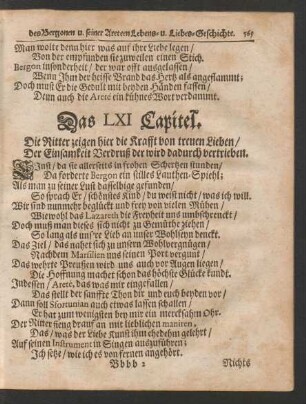 des Bergonen u. seiner Areteen Lebens- u. Liebes-Geschichte. 563
Man wolt denn hier was auf ihr Liebe legen/
Von der empfunden sie zuweilen einen Stich.
Bergon insonderheit/ der war offt ausgelassen/
Wenn Ihm der heisse Brand das Hertz als angeflammt;
Doch must Er die Gedult mit beyden Händen fassen/
Denn auch die Areté ein kühnes Wort verdammt.
Das LXI Capitel.
Die Ritter zeigen hier die Krafft von treuen Lieben/
Der Einsamkeit Verdruß der wird dadurch vertrieben.
EInst/ da sie allerseits in frohen Schertzen stunden/
Da forderte Bergon ein stilles Lauthen-Spiehl;
Als man zu seiner Lust dasselbige gefunden/
So sprach Er/ schönstes Kind/ du weist nicht/ was ich will.
Wir sind nunmehr beglückt und frey von vielen Mühen/
Wiewohl das Lazareth die Freyheit uns umbschrenckt/
Doch muß man dieses sich nicht zu Gemüthe ziehen/
So lang als unsre Lieb an unser Wohlseyn denckt.
Das Ziel/ das nahet sich zu unsern Wohlvergnügen/
Nachdem Marsilien uns seinen Port vergunt/
Das wehrte Preussen wird uns auch vor Augen liegen/
Die Hoffnung macht er schon das höchste Glücke kundt.
Indessen/ Areté, das was mir eingefallen/
Das stellt der sanffte Thon dir und euch beyden vor/
Dann soll Sforunian auch etwas lassen schallen/
Er hat zum wenigsten bey mir ein mercksahm Ohr.
Der Ritter fieng drauf an mit lieblichen manieren,
Das/ was der Liebe Kunst ihm ehedehm gelehrt/
Auf seinen Instrument in Singen auszuführen;
Ich setz/ wie ich es von fernen angehört.
Bbbb 2
Nichts